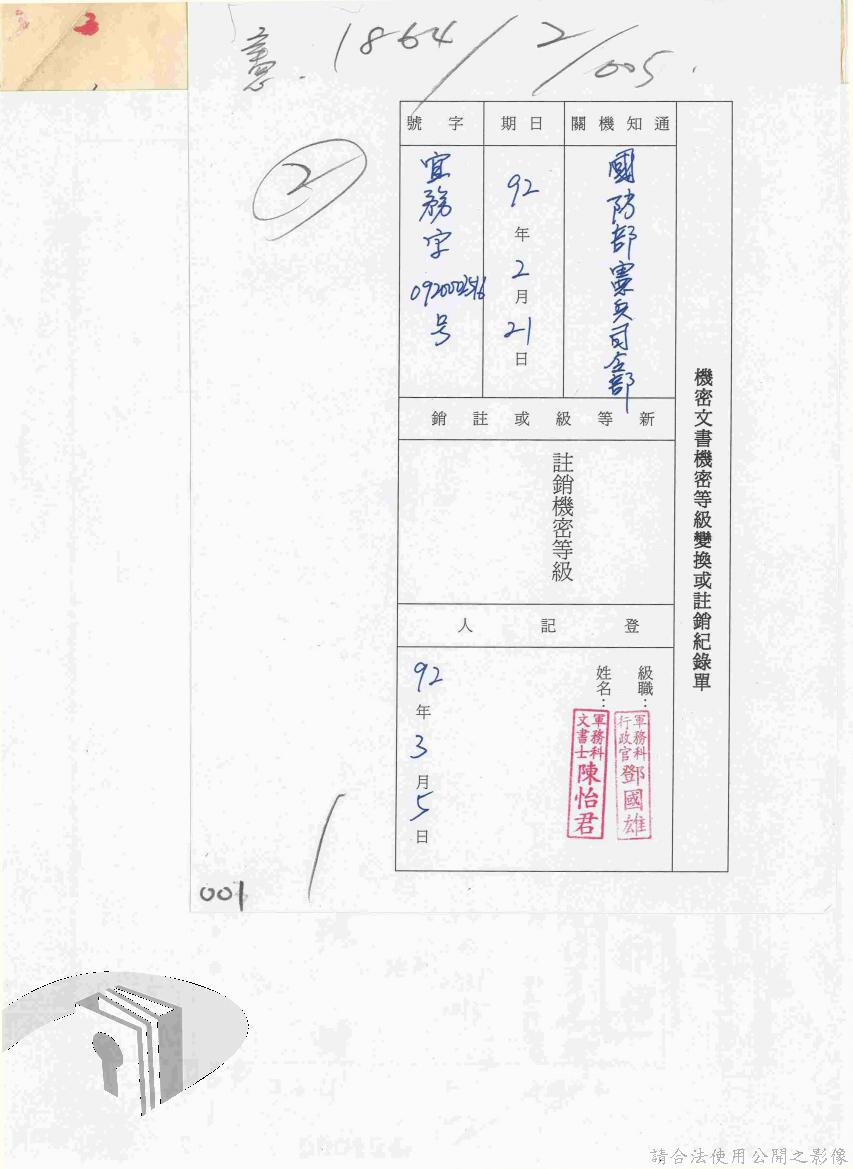 憲. 1864/2/005.
2
機密文書機密等級變換或註銷紀錄單
通知機關
國防部憲兵司令部
日期
92年2月21日
字號
宜務字
号
新等級或註銷
註銷機密等級
登記人
級職：
軍務科
行政官
鄧國雄
姓名：
軍務科
文書士
陳怡君
92年3月5日
001
請合法使用公開之影像